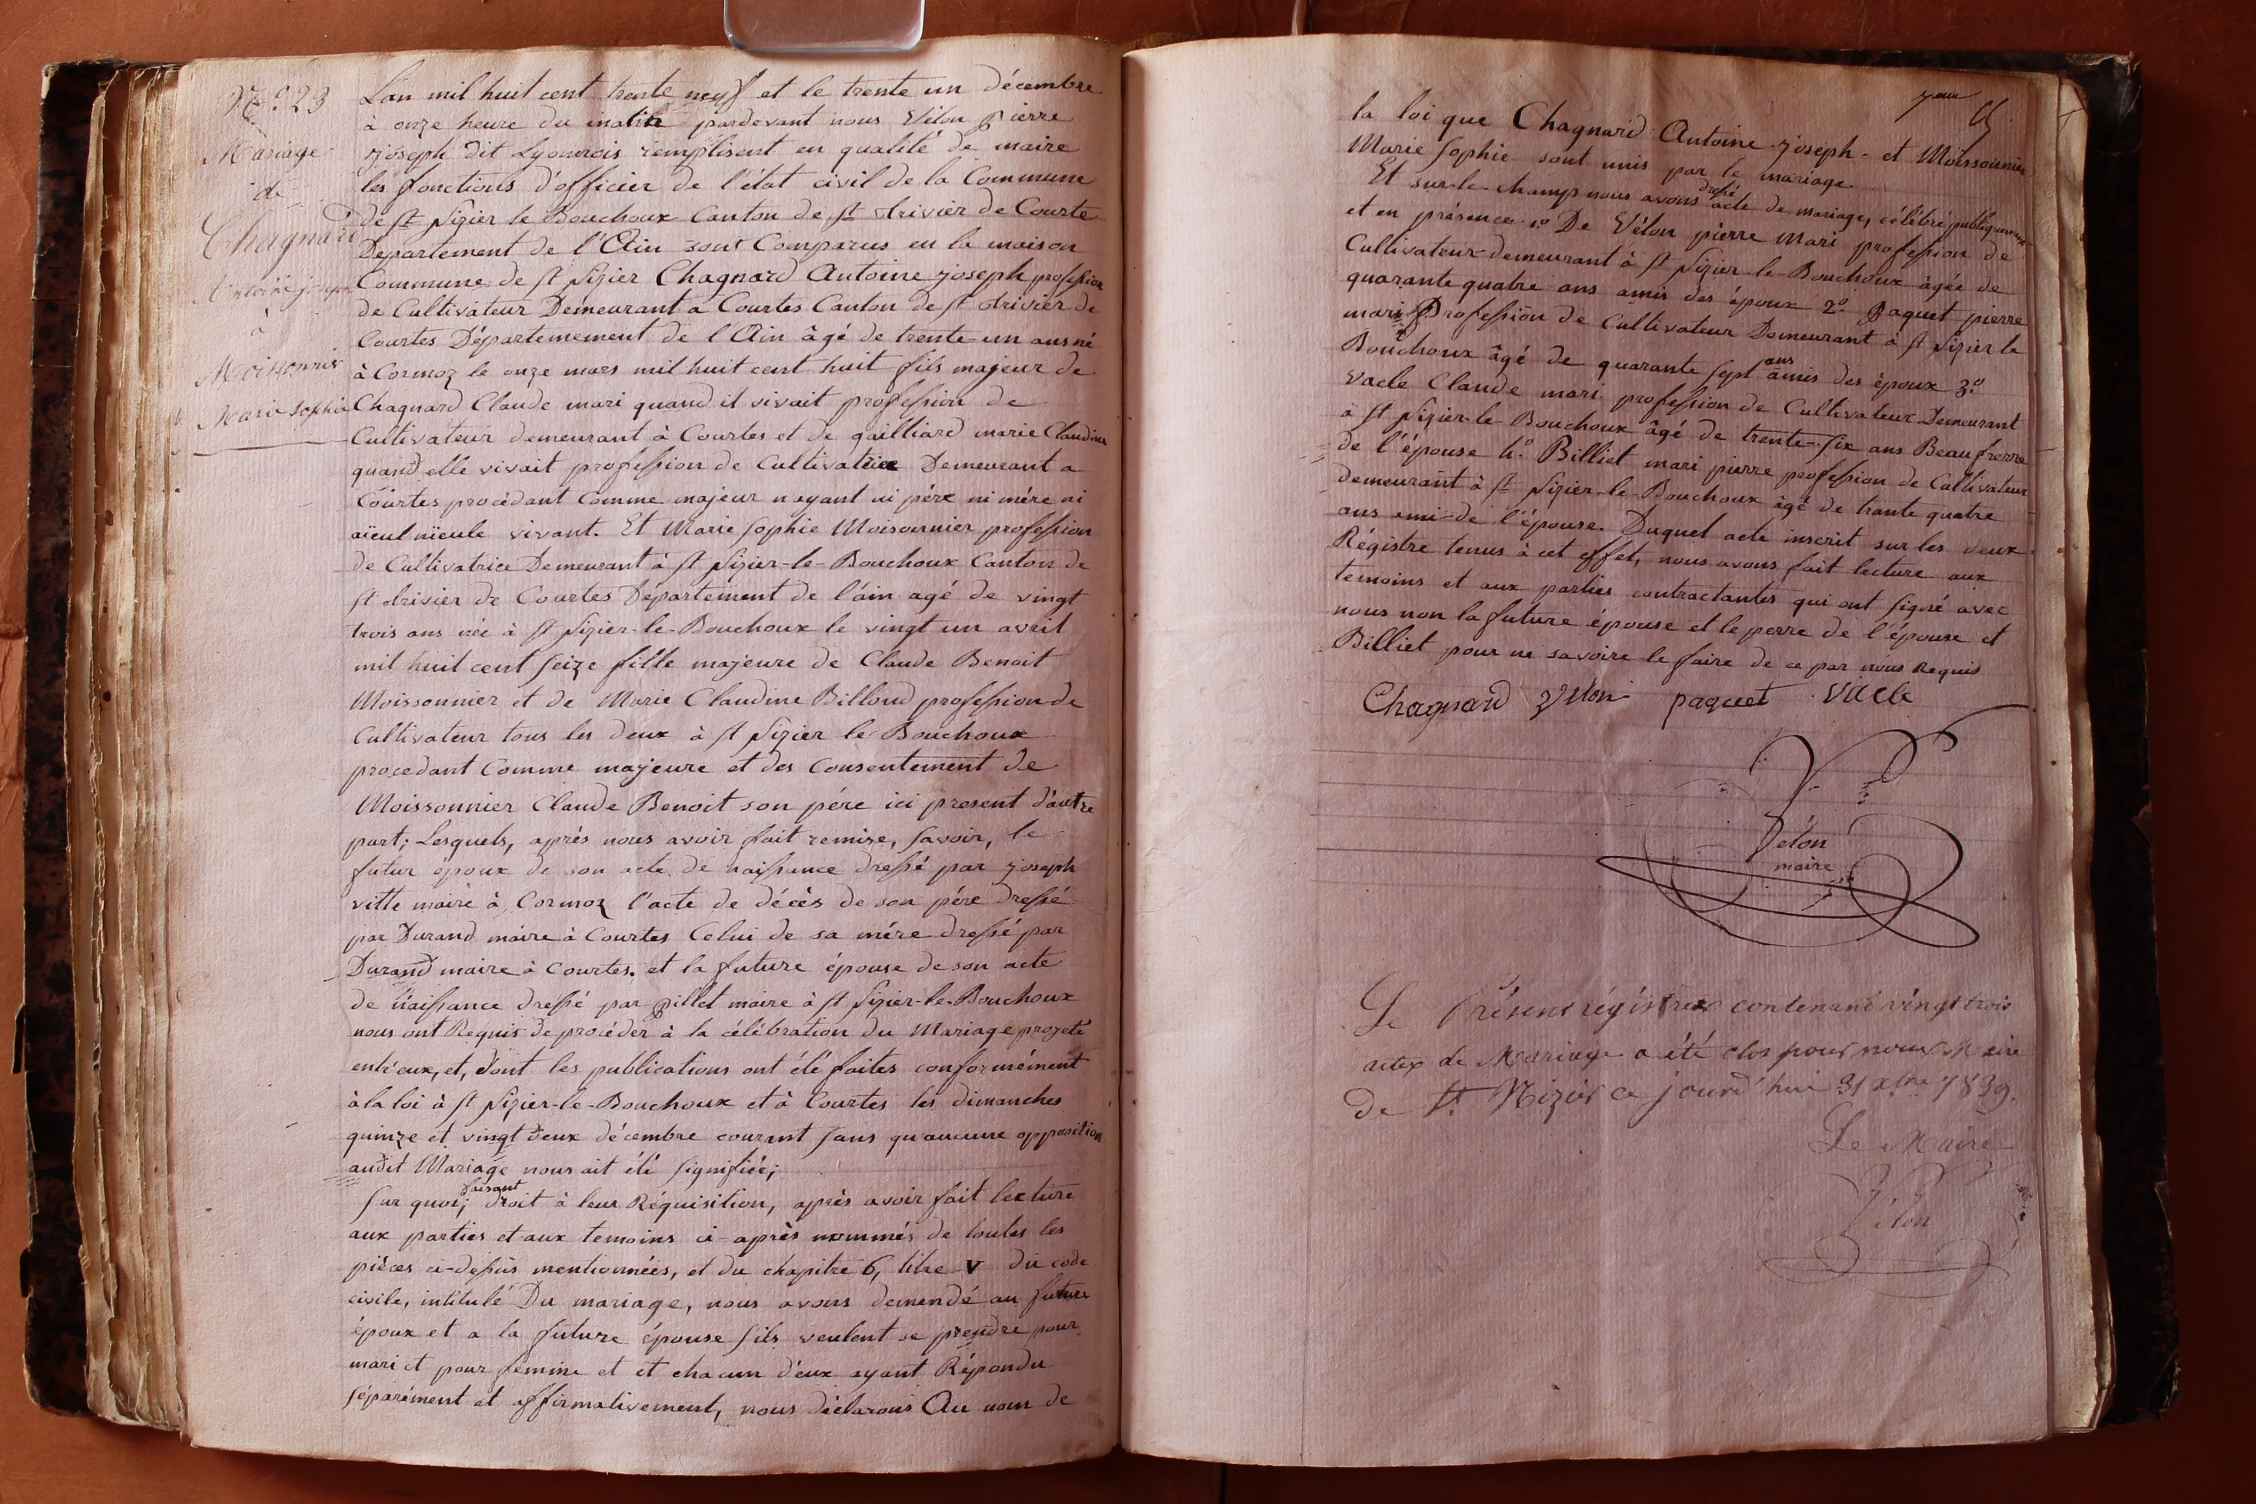 N.° 23
Mariage
de
Chagnard
Antoine joseph
à
Moissonnier
Marie Sophie
Lan mil huit cent trente neuf et le trente un décembre
à onze heure du matin pardevant nous Vélon pierre
joseph dit Lyonnois remplisent en qualité de maire
les fonctions d'officier de l'état civil de la Commune
de st Nizier le Bouchoux Canton de st trivier de Courte
Departement de l'Ain sont Comparus en la maison
Commune de st Nizier Chagnard Antoine joseph profession
de Cultivateur Demeurant a Courtes Canton de st trivier de
Courtes Départemement de l'Ain âgé de trente un ans né
à Cormoz le onze mars mil huit cent huit fils majeur de
Chagnard Claude mari quand il vivait profession de
Cultivateur demeurant à Courtes et de gailliard marie Claudine
quand elle vivait profession de Cultivatrice Demeurant a
Courtes procédant Comme majeur n'ayant ni pére ni mére ni
aïeul nieule vivant. Et Marie Sophie Moisonnier profession
de Cultivatrice Demeurant à st Nizier-le-Bouchoux Canton de
st trivier de Courtes Departement de l'ain agé de vingt
trois ans née à st Nizier-le-Bouchoux le vingt un avril
mil huit cent seize fille majeure de Claude Benoit
Moissonnier et de Marie Claudine Billoud profession de
Cultivateur tous les deux à st Nizier le Bouchoux
procedant Comme majeure et des Consentement de
Moissonnier Claude Benoit son pére ici present d'autre
part; Lesquels, après nous avoir fait remise, savoir, le
futur époux de son acte de naissance dressé par joseph
vitte maire à Cormoz l'acte de décès de son pére dressé
par Durand maire à Courtes Celui de sa mére dressé par
Durand maire à Courtes. et la future épouse de son acte
de naissance dressé par pillet maire à st Nizier-le-Bouchoux
nous ont Requis de procéder à la célébration du Mariage projeté
entre eux, et, dont les publications ont été faites conformément
à la loi à st Nizier-le-Bouchoux et à Courtes les dimanches
quinze et vingt deux décembre courant sans qu'aucune opposition
audit Mariage nous ait été signifiée;
Sur quoi, faisant droit à leur Réquisition, après avoir fait lecture
aux parties et aux temoins ci-après nommés de toutes les
pièces ci-dessus mentionnées, et du chapitre 6, titre V du code
civile, intitulé Du mariage, nous avons demendé au future
époux et a la future épouse s'ils veulent se prendre pour
mari et pour femme et et chacun d'eux ayant Répondu
séparément et affirmativement, nous déclarons Au nom de
la loi que Chagnard Antoine joseph et Moissonnier
Marie Sophie sont unis par le mariage
Et sur-le-champs nous avons dressé acte de mariage, célébré publiquement
et en présence 1° De Vélon pierre Mari profession de
Cultivateur demeurant à st Nizier le-Bouchoux âgée de
quarante quatre ans amis des époux 2° Paquet pierre
mari Profession de Cultivateur Demeurant à st Nizier le
Bouchoux âgé de quarante sept ans amis des époux 3°
Vacle Claude mari profession de Cultivateur Demeurant
à st Nizier-le-Bouchoux âgé de trente-six ans Beau frerre
de l'épouse 4° Billiet mari pierre profession de Cultivateur
demeurant à st Nizier-le-Bouchoux âgé de trante quatre
ans ami de l'épouse. Duquel acte inscrit sur les deux
Régistre tenus à cet effet, nous avons fait lecture aux
temoins et aux parties contractantes qui ont signé avec
nous non la future épouse et le perre de l'épouse et
Billiet pour ne savoire le faire de ce par nous Requis
Chagnard Vélon paquet Vacle
Vélon
maire
Le Présent régistre contenant vingt trois
actes de Mariage a été clos par nous Maire
de St Nizier ce jourd'hui 31 xbre 1839.
Le Maire
Vélon